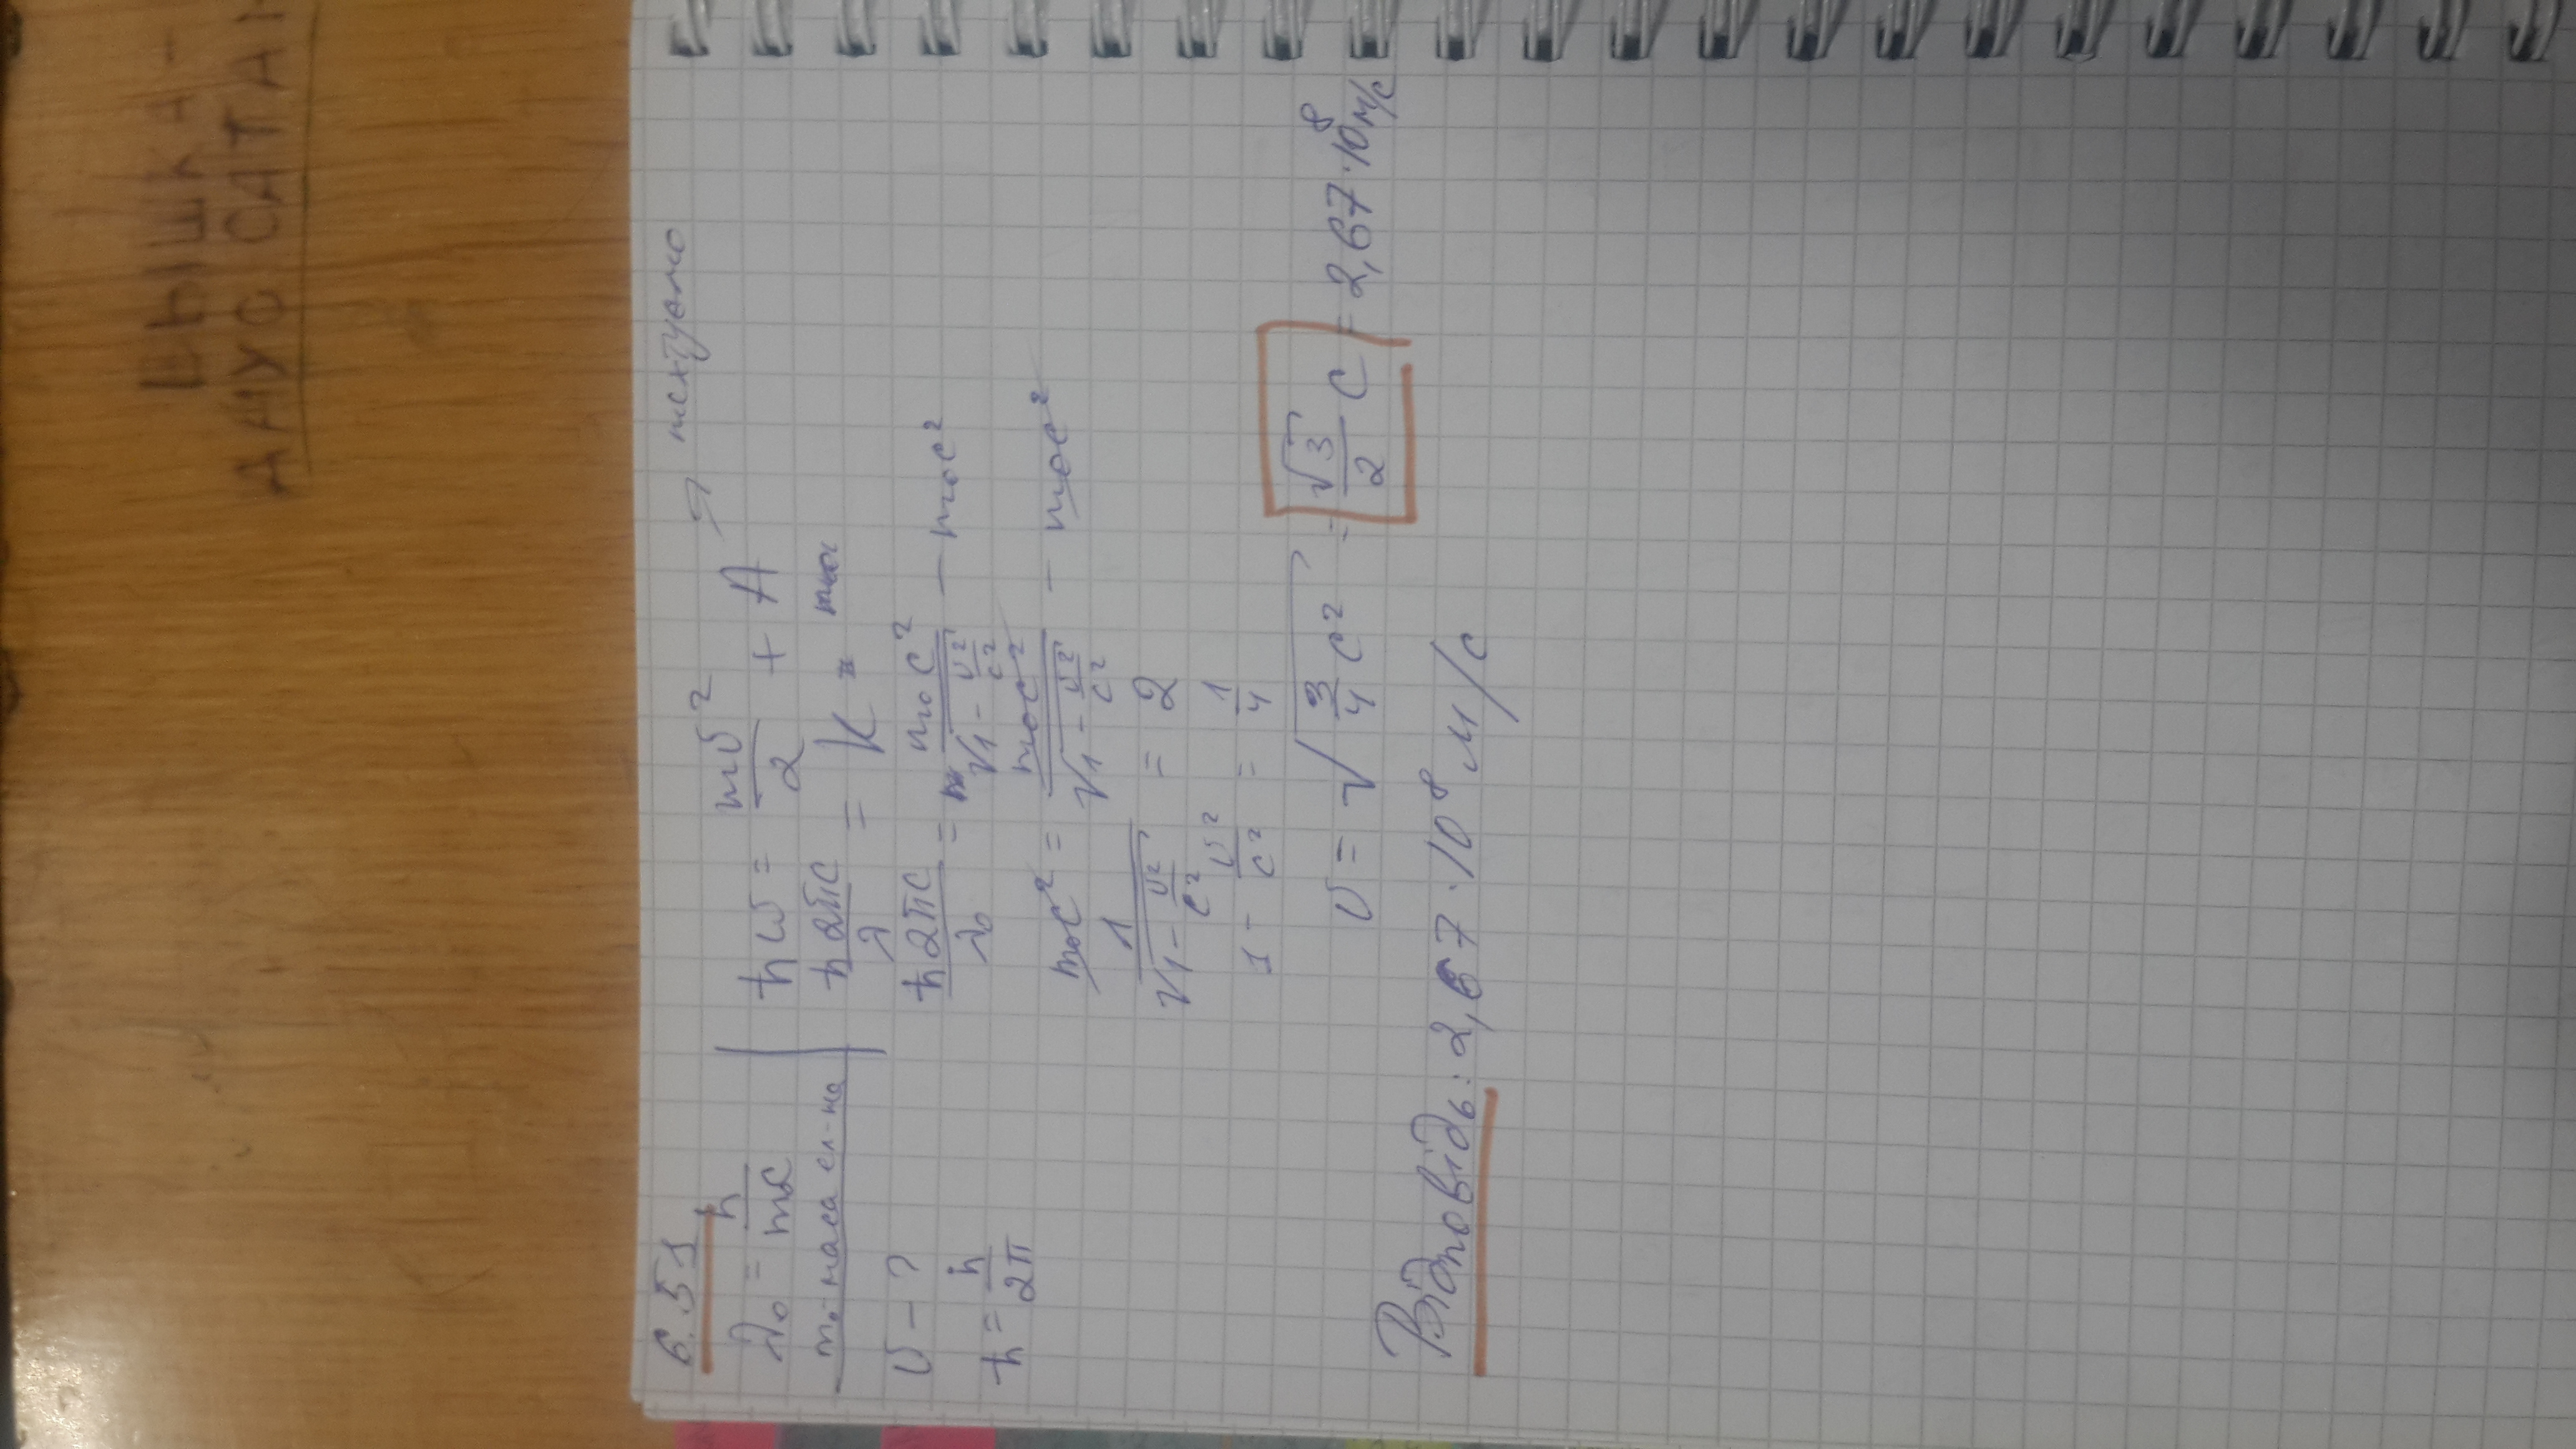 ВЫШКА -
АНУС САТАН
6.51
λ₀ = h/mc
m₀ - маса ел-на
υ - ?
ħ = h/2π
ħω = mυ²/2 + A → нехтуємо
ħ2πc/λ = K =
ħ2πc/λ₀ = m₀c²/√(1 - υ²/c²) - m₀c²
m₀c² = m₀c²/√(1 - υ²/c²) - m₀c²
1/√(1 - υ²/c²) = 2
1 - υ²/c² = 1/4
υ = √(3/4 c²) = √3/2 c = 2,67·10⁸ м/с
Відповідь: 2,67·10⁸ м/с